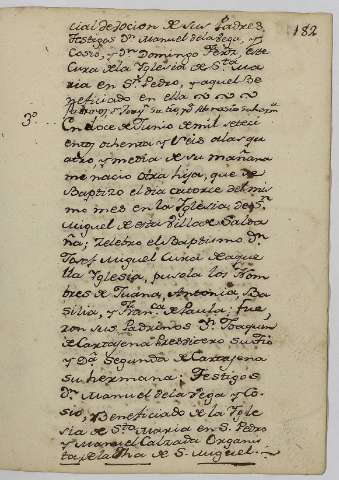 182
cial devocion de sus Padres,
Testigos Dn. Manuel de la Vega, y
Cosio, y Dn. Domingo Peña este
Cura de la Yglesia de Sta. Ma
ria en Sn. Pedro, y aquel Be
neficiado en ella
3º
En doce de Junio de mil setecie
entos ochenta y seis a las qu
atro, y media de su mañana
me nacio otra hija, que se
Baptizo el dia catorce del mis
mo mes en la Yglesia de Sn.
Miguel de esta villa de Salda
ña; celebro el Baptismo Dn.
Miguel Cura de aque
lla Yglesia, pusela los Nom
bres de Juana, Antonia, Ba
silia, y Franca. de Paula, fue
ron sus Padrinos Dn. Joaquin
de Cartajena Presvitero su tio
y Da. Segunda de Cartajena
su hermana: Testigos
Dn. Manuel de la Vega y Co
sio, Beneficiado de la Ygle
sia de Sta. Maria en S. Pedro
y Manuel Calzada Organis
ta de la de S. Miguel.